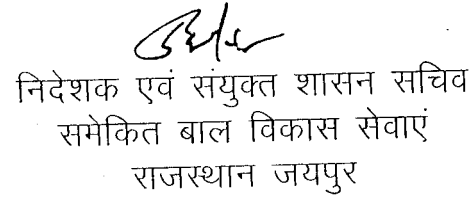 निदेशक एवं संयुक्त शासन सचिव
समेकित बाल विकास सेवाएं
राजस्थान जयपुर